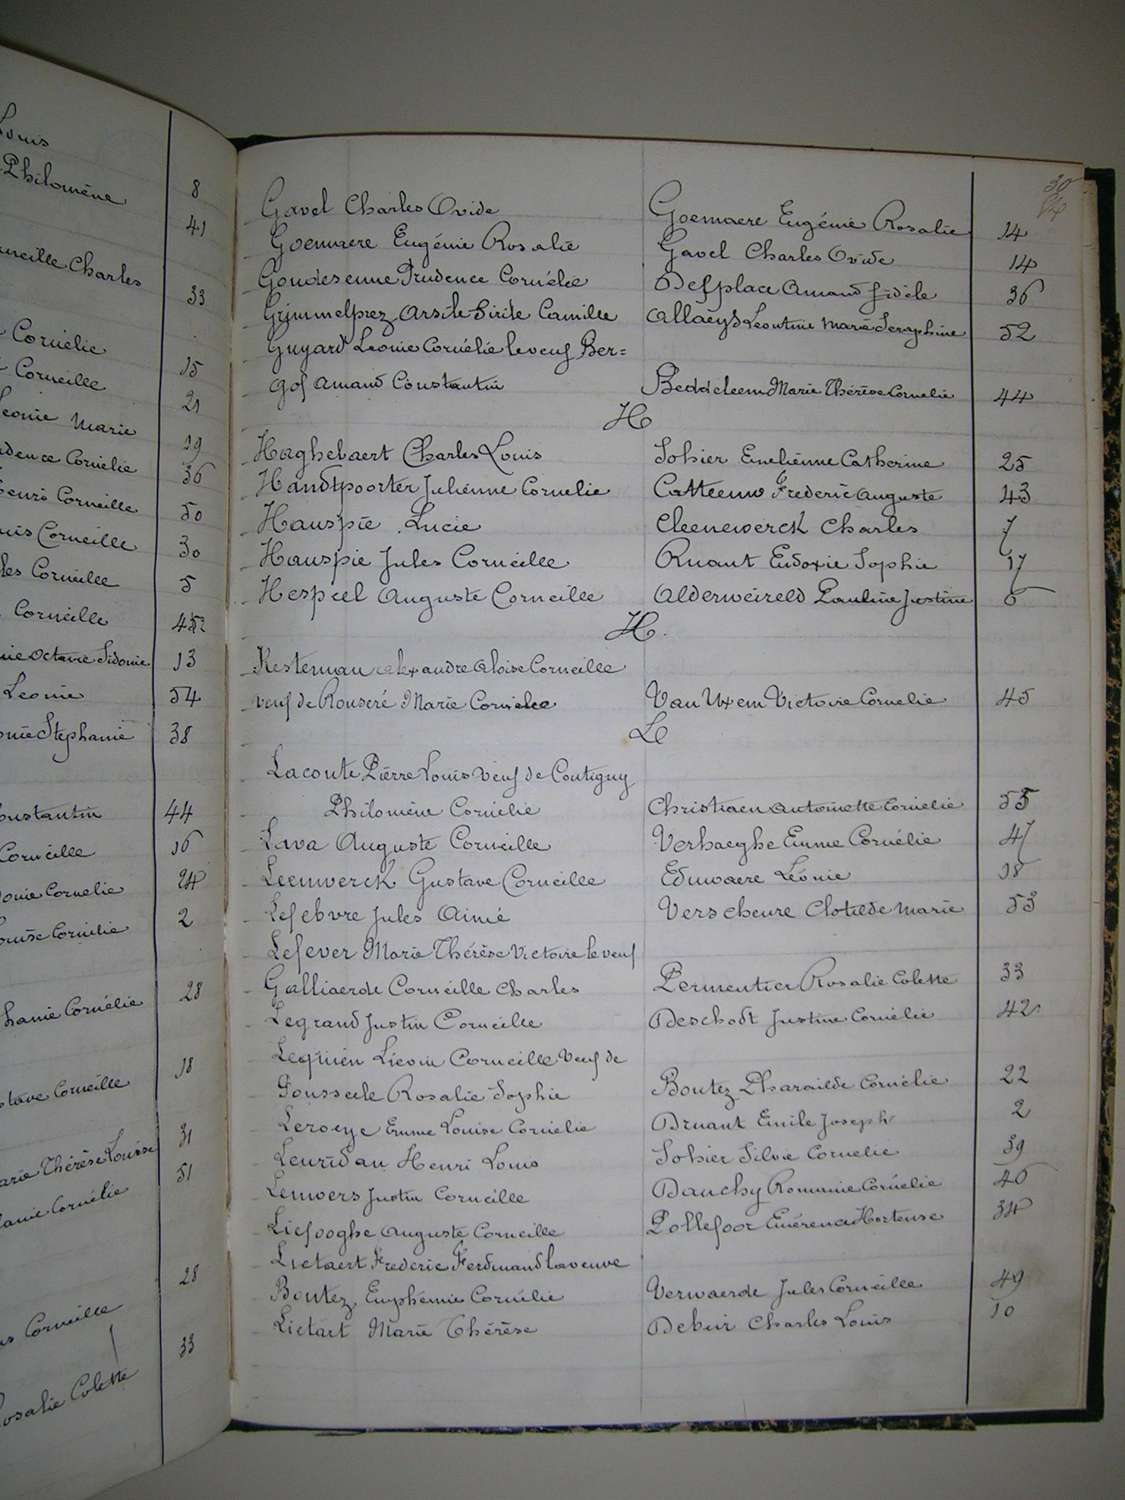 Louis
Philomène 8
41
Corneille Charles 33
Cornélie 15
Corneille 21
Leonie Marie 19
Prudence Cornélie 36
Henri Corneille 50
Louis Corneille 30
Corneille 5
Corneille 45
Octavie Sidonie 13
Leonie 54
Stephanie 38
Constantin 44
Corneille 16
Cornelie 24
Louise Cornélie 2
Cornélie 28
Gustave Corneille 18
Marie Thérèse Louise 31
Cornélie 51
28
Corneille 33
Rosalie Colette
30
Gavel Charles Ovide Goemaere Eugénie Rosalie 14
Goemaere Eugénie Rosalie Gavel Charles Ovide 14
Goudesenne Prudence Cornélie Desplace Amand Fidèle 36
Grimmelprez Arsile Cirile Camille Allaeys Leontine Marie Seraphine 52
Guyard Leonie Cornélie le veuf Ber=
gof Amand Constantin Beddeleem Marie Thérèse Cornelie 44
H
Haghebaert Charles Louis Sohier Emelienne Catherine 25
Handtpoorter Julienne Cornelie Catteeuw Frederic Auguste 43
Hauspie Lucie Cleenewerck Charles 7
Hauspie Jules Corneille Ruant Eudoxie Sophie 17
Hespeel Auguste Corneille Alderweireld Pauline Justine 6
K.
Kesteman Alexandre Aloise Corneille
veuf de Rouseré Marie Cornelie Van Uxem Victoire Cornelie 45
L
Laconte Pierre Louis Veuf de Coutigny
Philomène Cornélie Christiaen Antoinette Cornelie 55
Lava Auguste Corneille Verhaeghe Emme Cornélie 47
Leenwerck Gustave Corneille Eduwaere Léonie 18
Lefebvre Jules Aimé Verscheure Clotilde Marie 53
Lefever Marie Thérèse Victoire le veuf
Galliaerde Corneille Charles Permentier Rosalie Colette 33
Legrand Justin Corneille Deschodt Justine Cornélie 42
Lequien Léon Corneille Veuf de
Gousseele Rosalie Sophie Boutez Pharailde Cornélie 22
Leroeye Emme Louise Cornélie Druant Emile Joseph 2
Leuridan Henri Louis Sohier Silvie Cornelie 39
Lenvers Justin Corneille Dauchy Romanie Cornélie 46
Liefooghe Auguste Corneille Pollefoor Emérence Hortense 34
Lietaert Frederic Ferdinand la veuve
Boutez Euphémie Cornélie Verwaerde Jules Corneille 49
Lietart Marie Thérèse Debuir Charles Louis 10